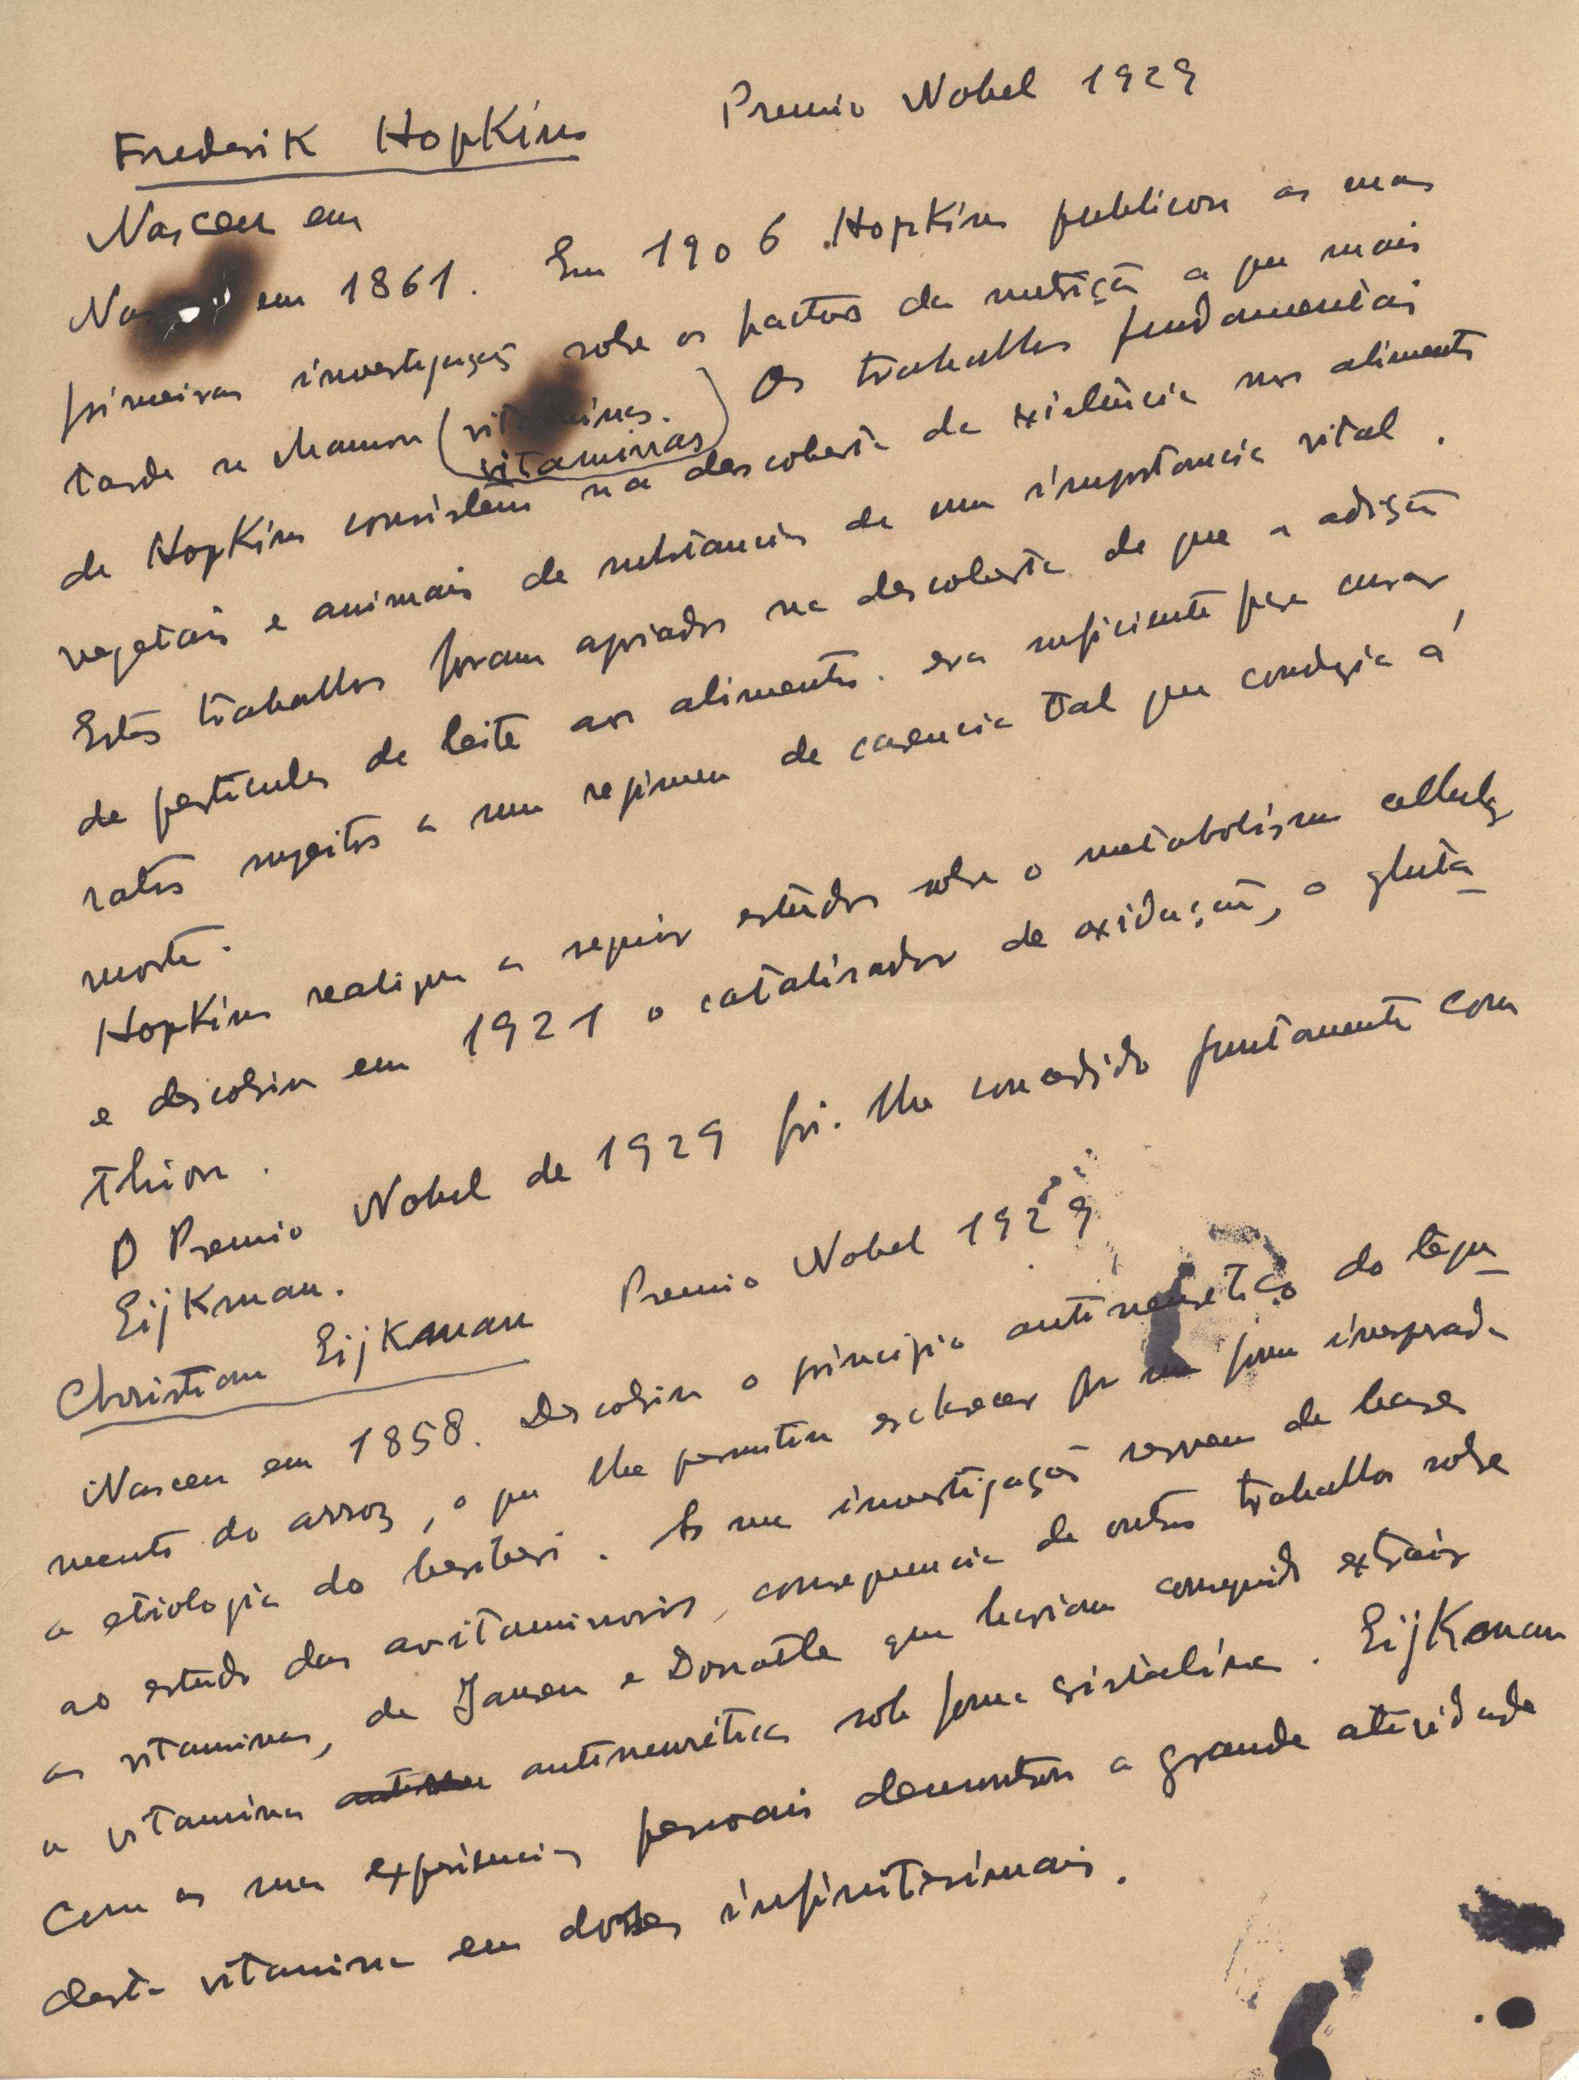 Frederik Hopkins Premio Nobel 1929
Nasceu em
Nasceu em 1861. Em 1906 Hopkins publicou as suas
primeiras investigações sobre os factores da nutrição a que mais
tarde se chamou (vitaminas.
vitaminas) Os trabalhos fundamentais
de Hopkins consistem na descoberta da existência nos alimentos
vegetais e animais de substancias de uma importancia vital.
Estes trabalhos foram apoiados na descoberta de que a adição
de particulas de leite aos alimentos era suficiente para curar
ratos sujeitos a um regimen de carencia tal que conduzia á
morte.
Hopkins realizou a seguir estudos sobre o metabolismo cellular
e descobriu em 1921 o catalisador de oxidação, o gluta-
thion.
O Premio Nobel de 1929 foi-lhe concedido juntamente com
Eijkman.
Christian Eijkman Premio Nobel 1929
Nasceu em 1858. Descobriu o principio antineuretico do tegu-
mento do arroz, o que lhe permitiu esclarecer por forma inesperada
a etiologia do beriberi. As suas investigações servem de bases
ao estudo das avitaminosis, consequencia de outros trabalhos sobre
as vitaminas, de Jansen e Donatte que haviam conseguido extrair
a vitamina antineuritica sob forma cristalina. Eijkman
Com as suas experiencias pessoais demonstrou a grande atividade
desta vitamina em doses infinitesimais.